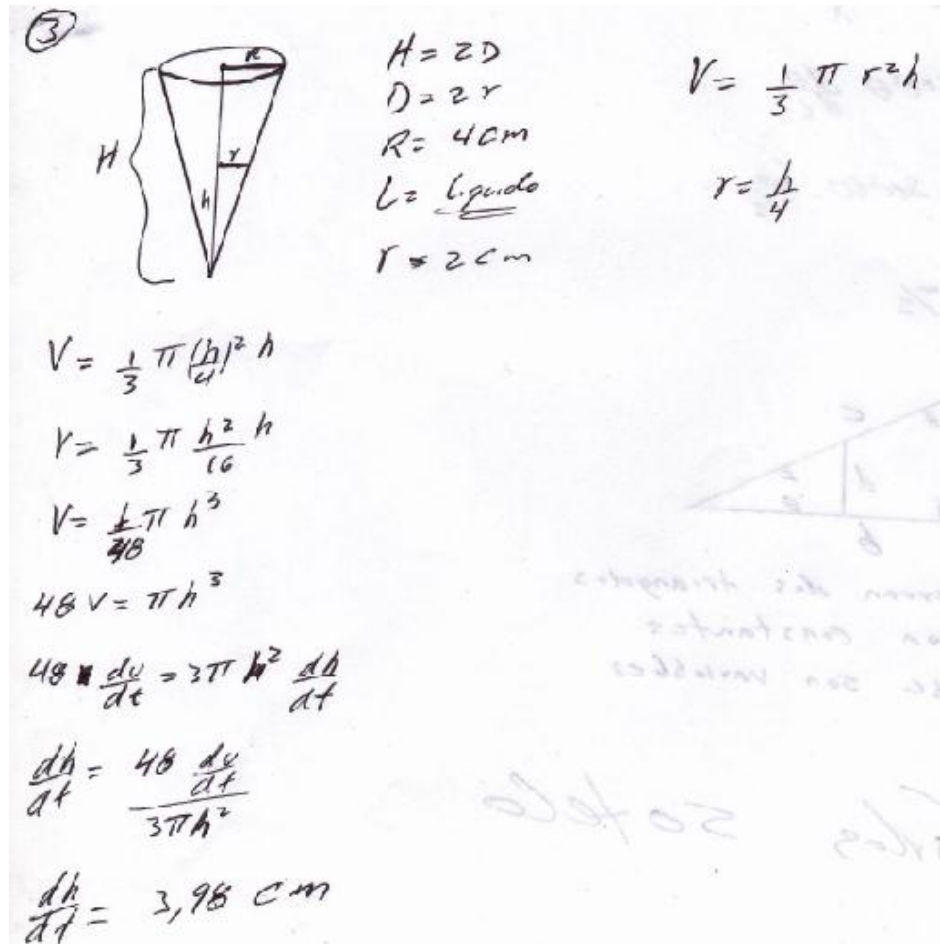 3
R
H
r
h
H = 2D
D = 2r
R = 4cm
L = Liquido
r = 2cm
V = 1/3 π r²h
r = h/4
V = 1/3 π (h/4)² h
V = 1/3 π h²/16 h
V = 1/48 π h³
48 V = π h³
48 dv/dt = 3π h² dh/dt
dh/dt = 48 dv/dt / 3πh²
dh/dt = 3,98 cm